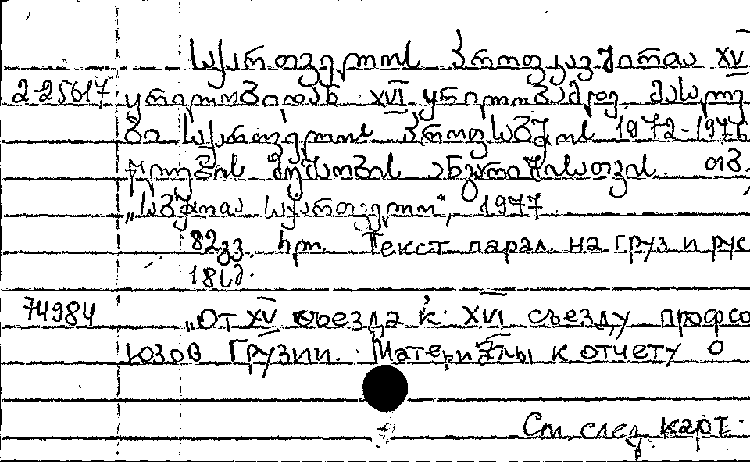 საქართველოს პროფკავშირთა XV
2-25617 ყრილობიდან XVI ყრილობამდე. მასალე
ბი საქართველოს პროფსაბჭოს 1972-1976
წლების მუშაობის ანგარიშისათვის. თბ.
„საბჭოთა საქართველო“, 1977
82გვ. ხრ. Текст парал. на груз и рус
74984 „От XV съезда к XVI съезду профсо
юзов Грузии. Материалы к отчету о
См. след. карт.